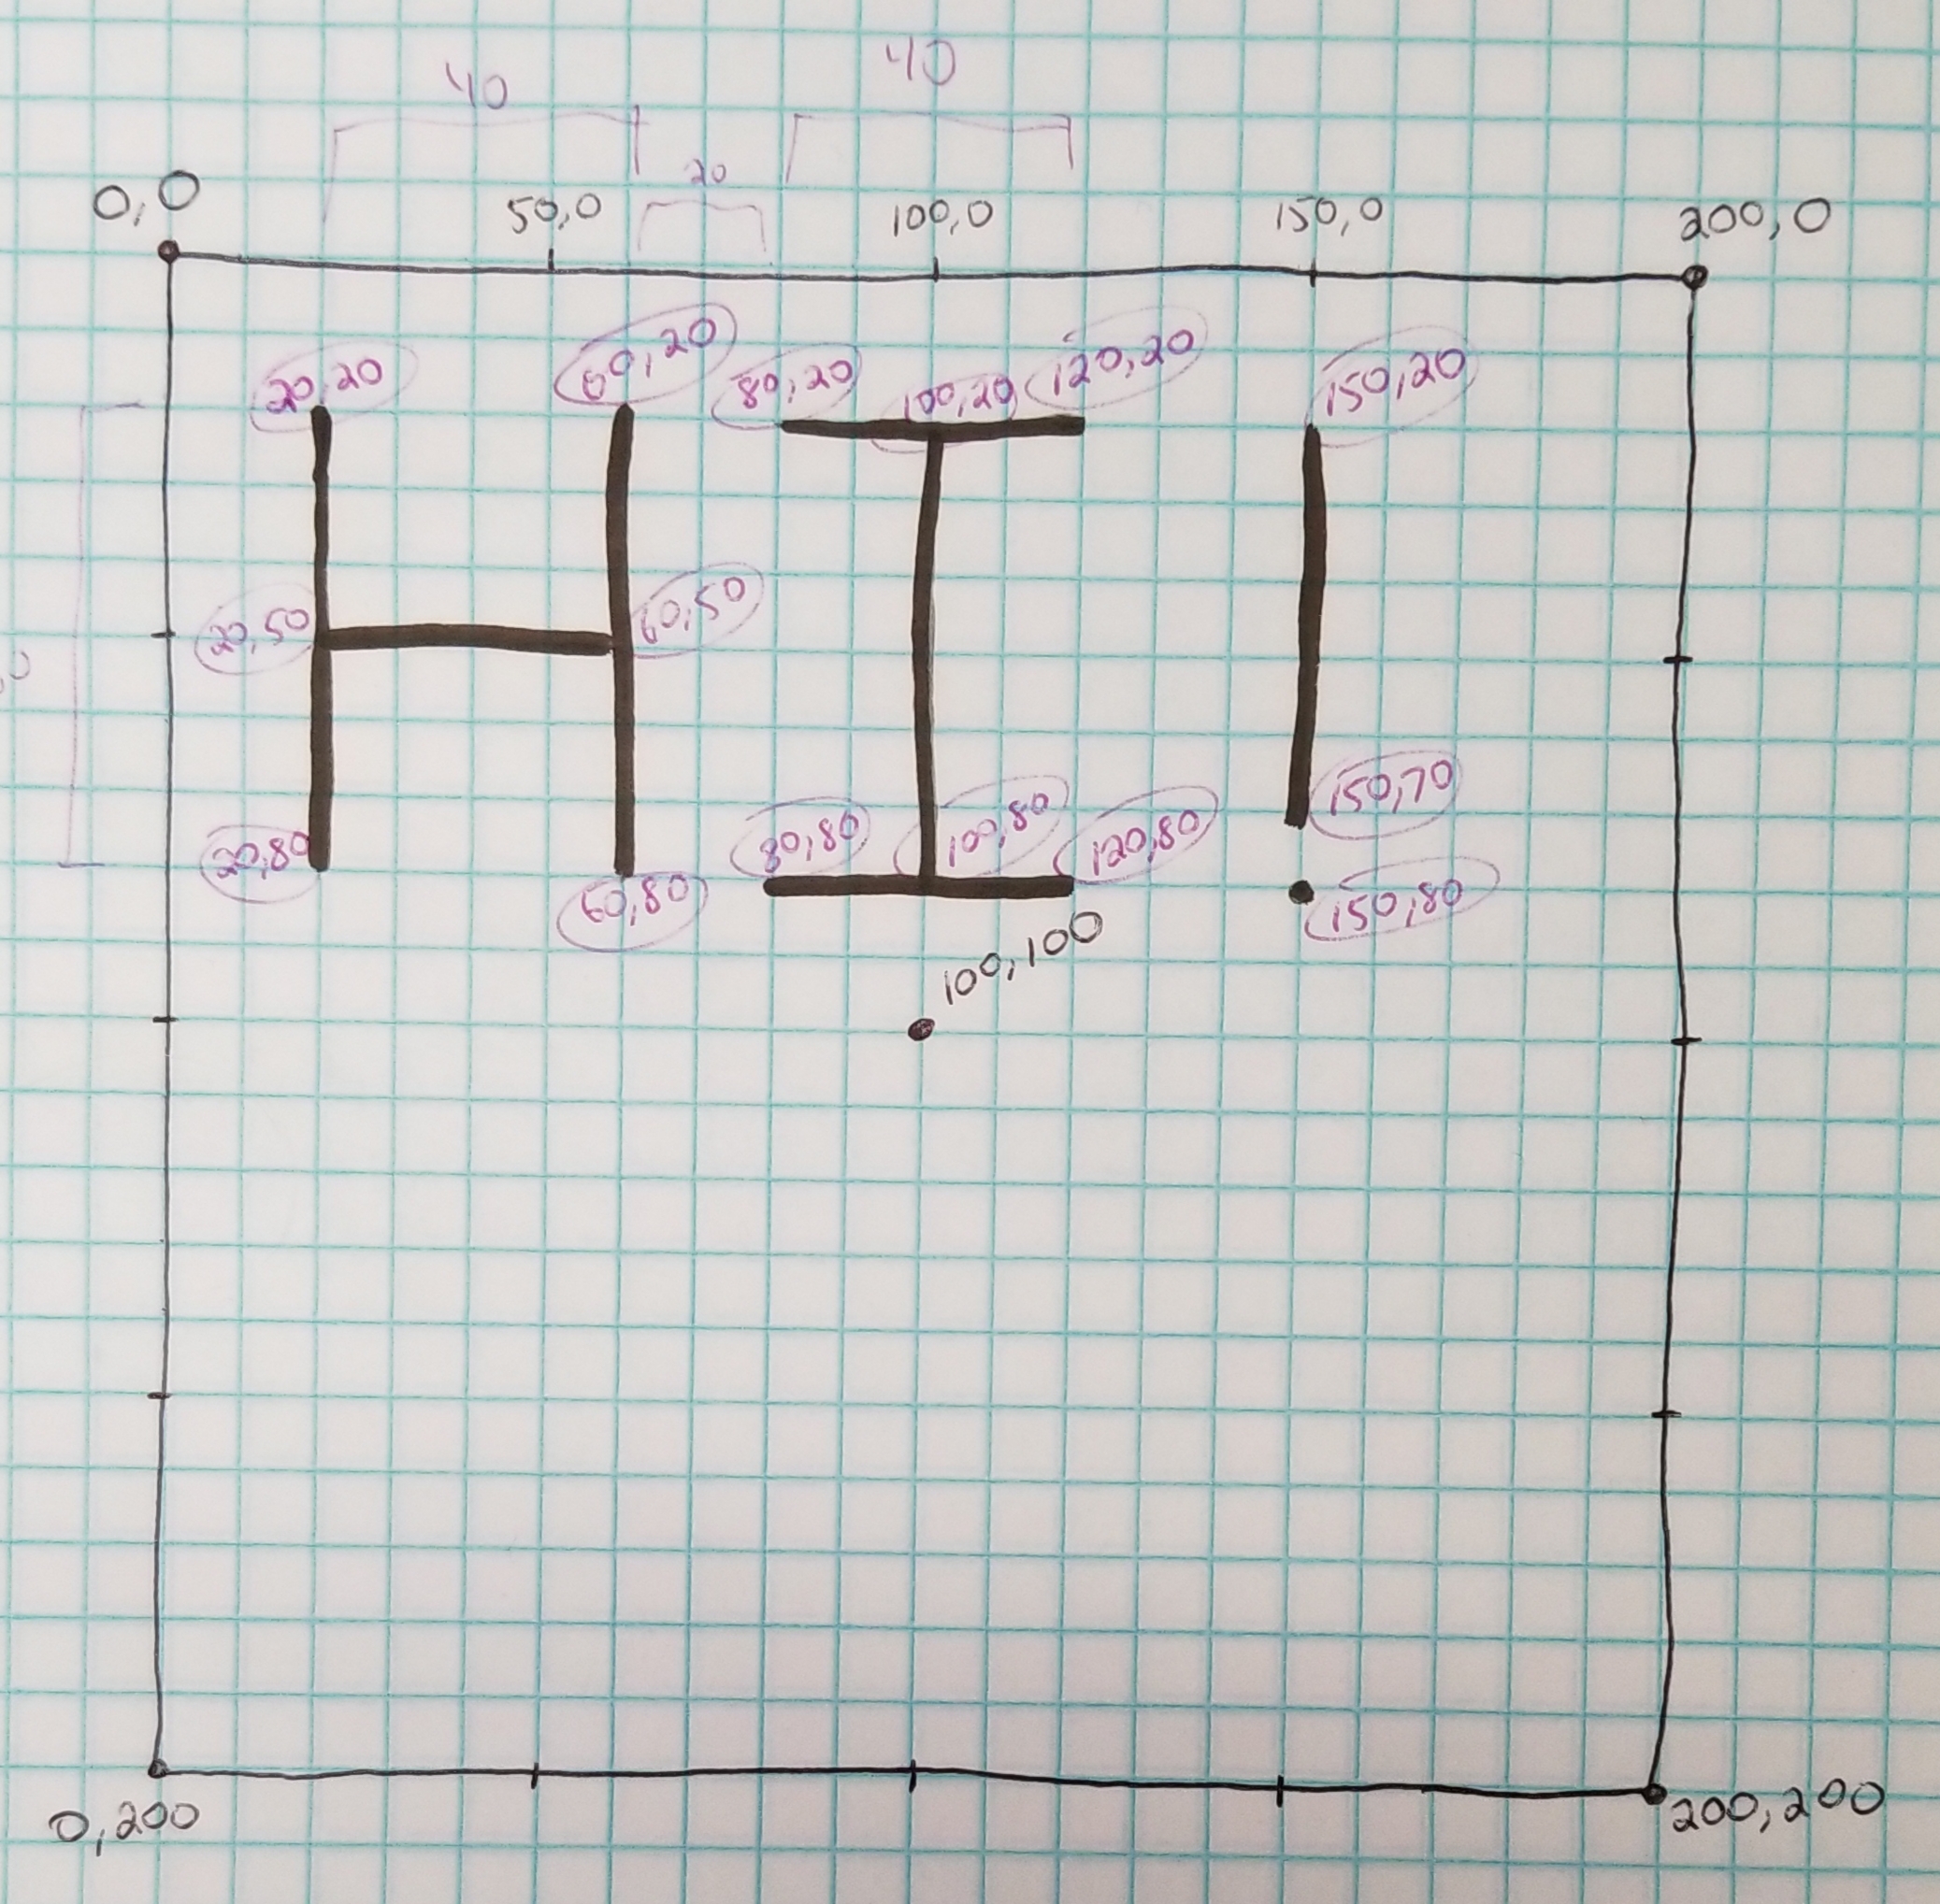 40 40
20
0,0 50,0 100,0 150,0 200,0
20,20 60,20 80,20 100,20 120,20 150,20
HI!
20,50 60,50
150,70
20,80 60,80 80,80 100,80 120,80 150,80
100,100
0,200 200,200